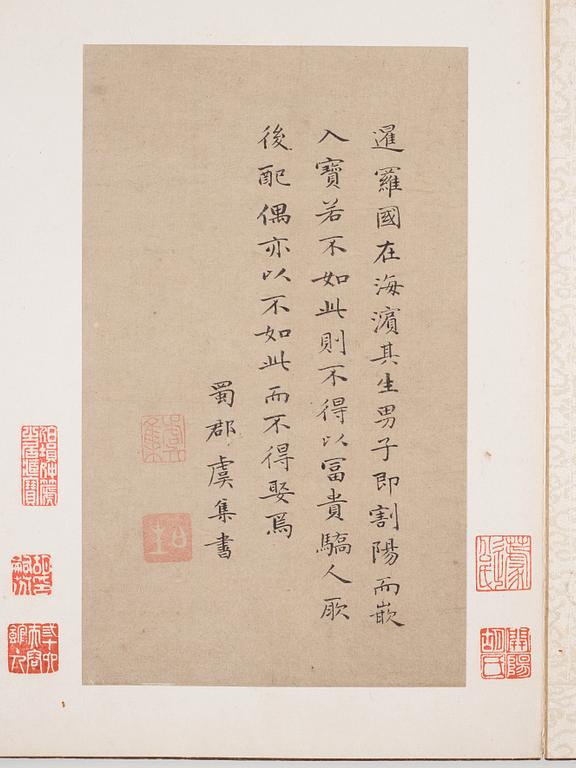 暹羅國在海濵其生男子即割陽而嵌
入寶若不如此則不得以冨貴驕人厥
後配偶亦以不如此而不得娶焉
蜀郡虞集書
虞集